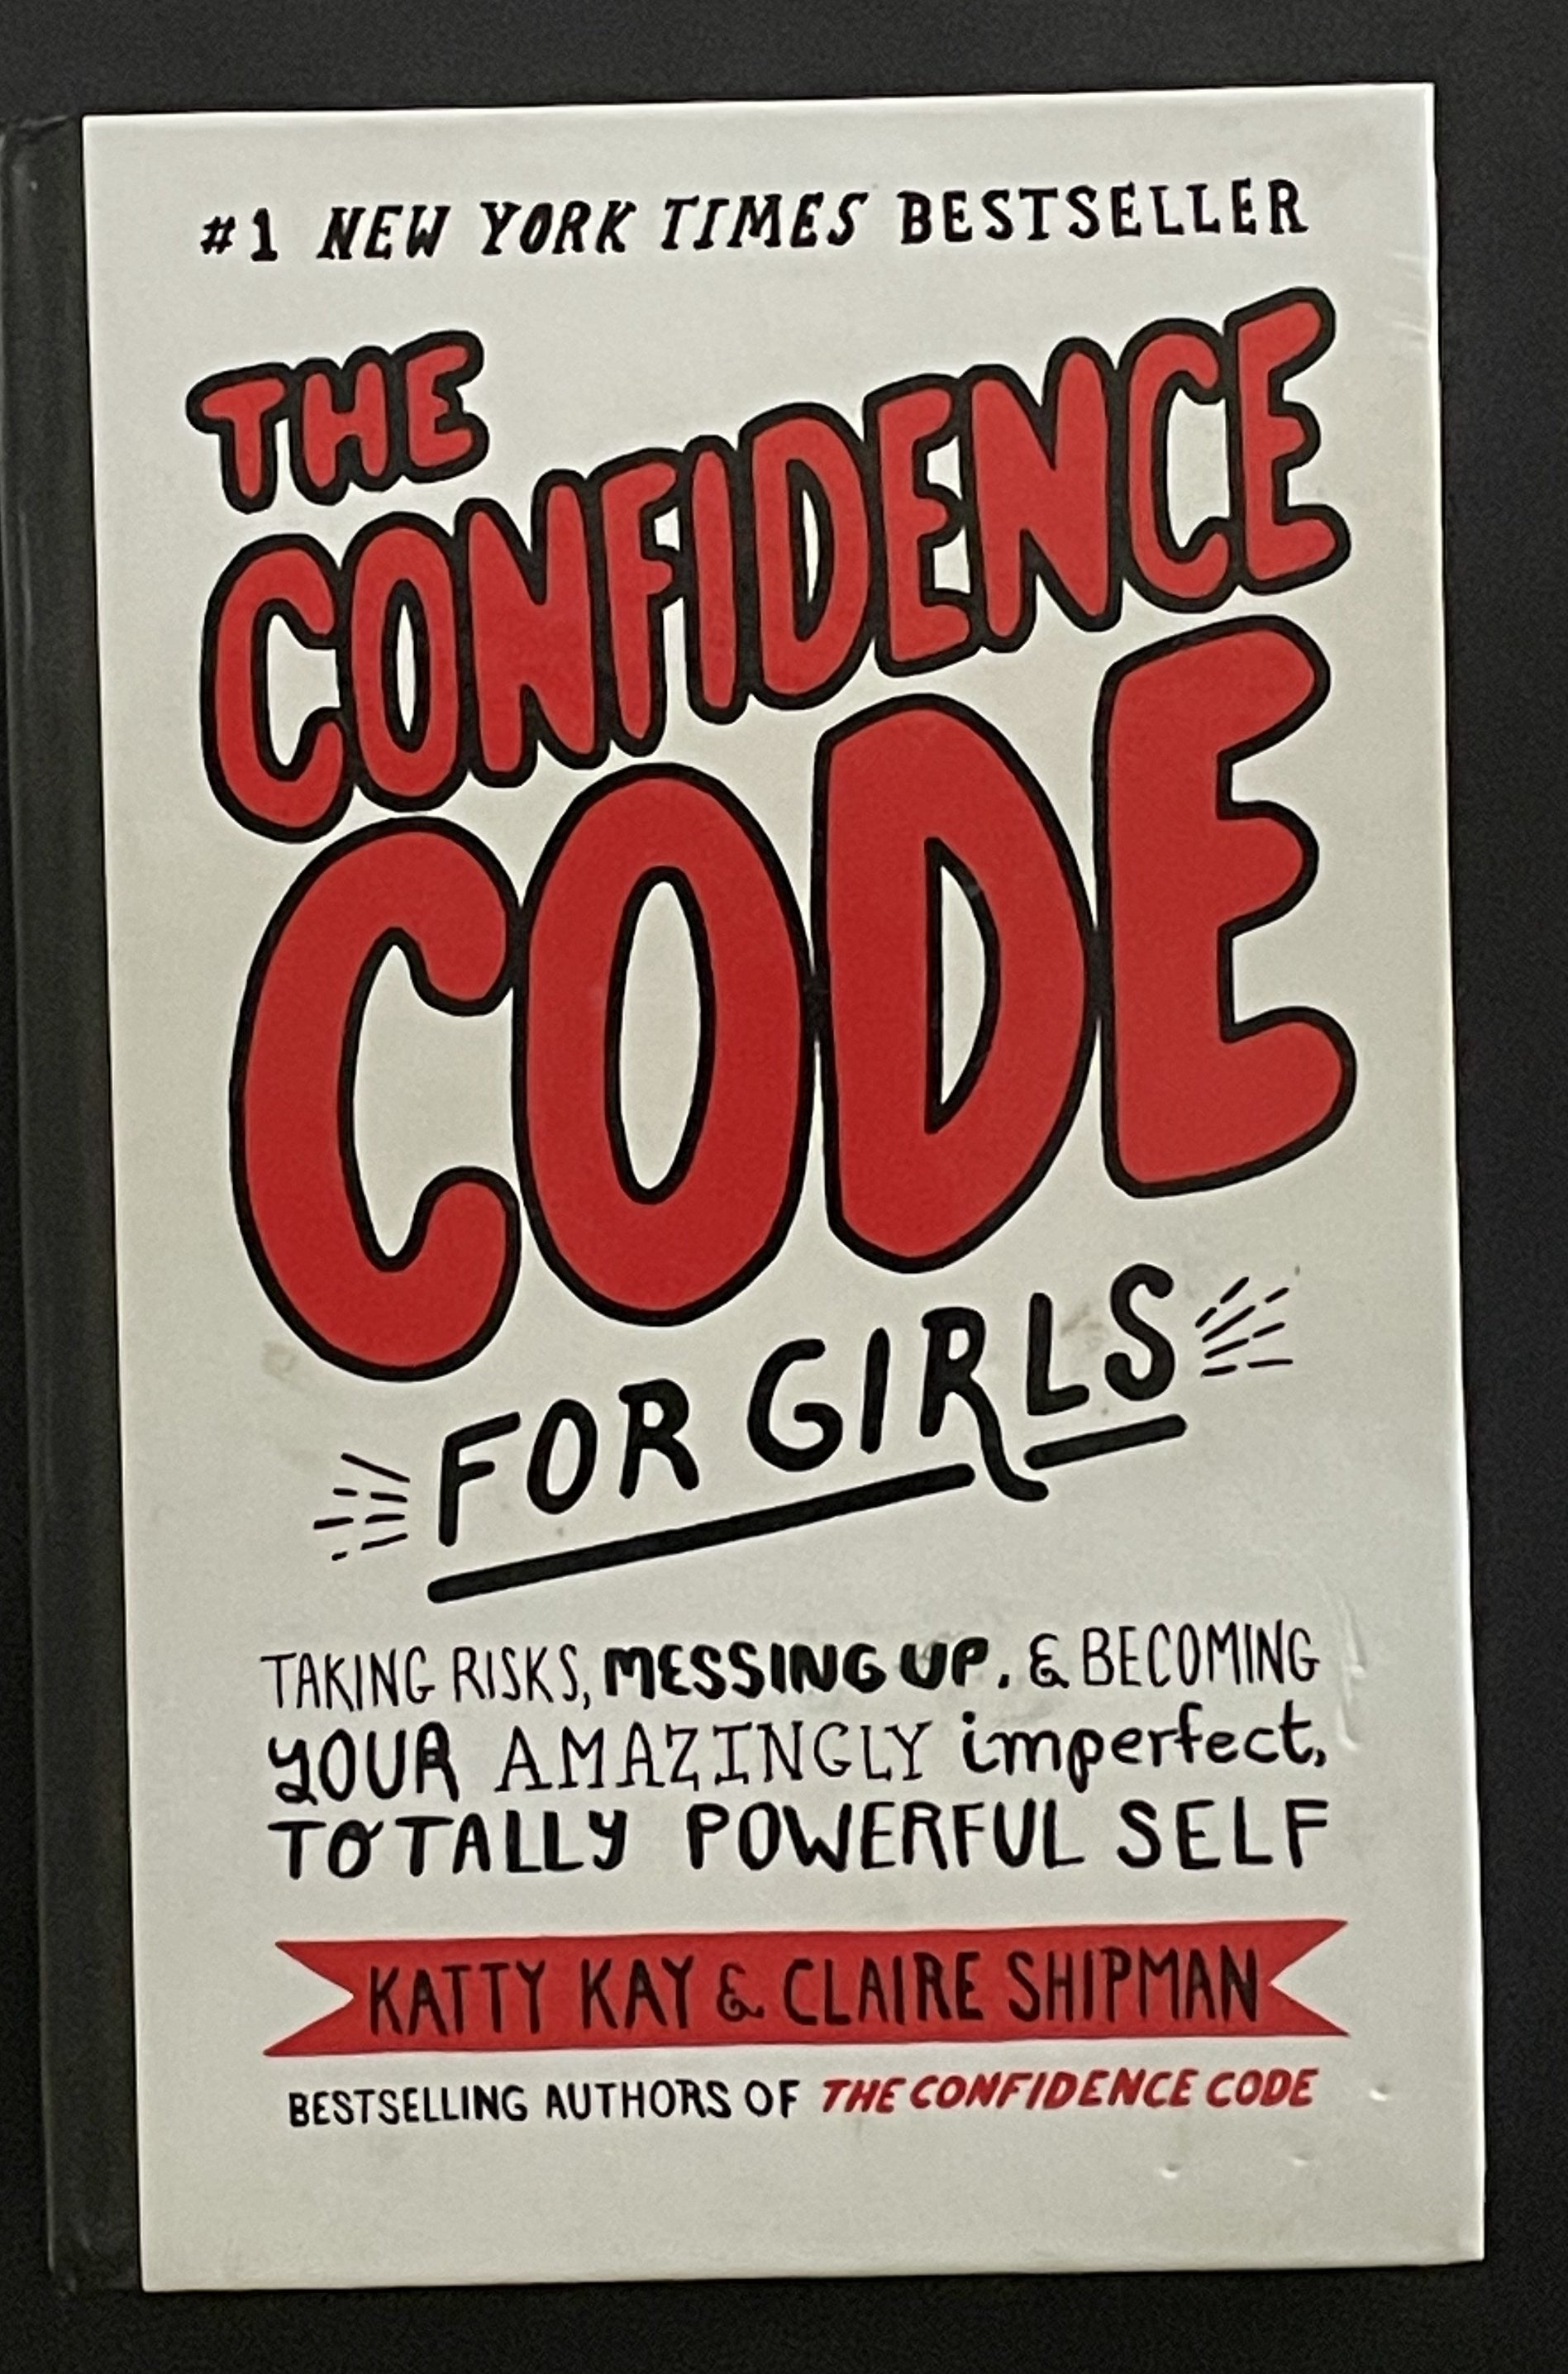 #1 NEW YORK TIMES BESTSELLER
THE
CONFIDENCE
CODE
FOR GIRLS
TAKING RISKS, MESSING UP, & BECOMING
YOUR AMAZINGLY imperfect,
TOTALLY POWERFUL SELF
KATTY KAY & CLAIRE SHIPMAN
BESTSELLING AUTHORS OF THE CONFIDENCE CODE